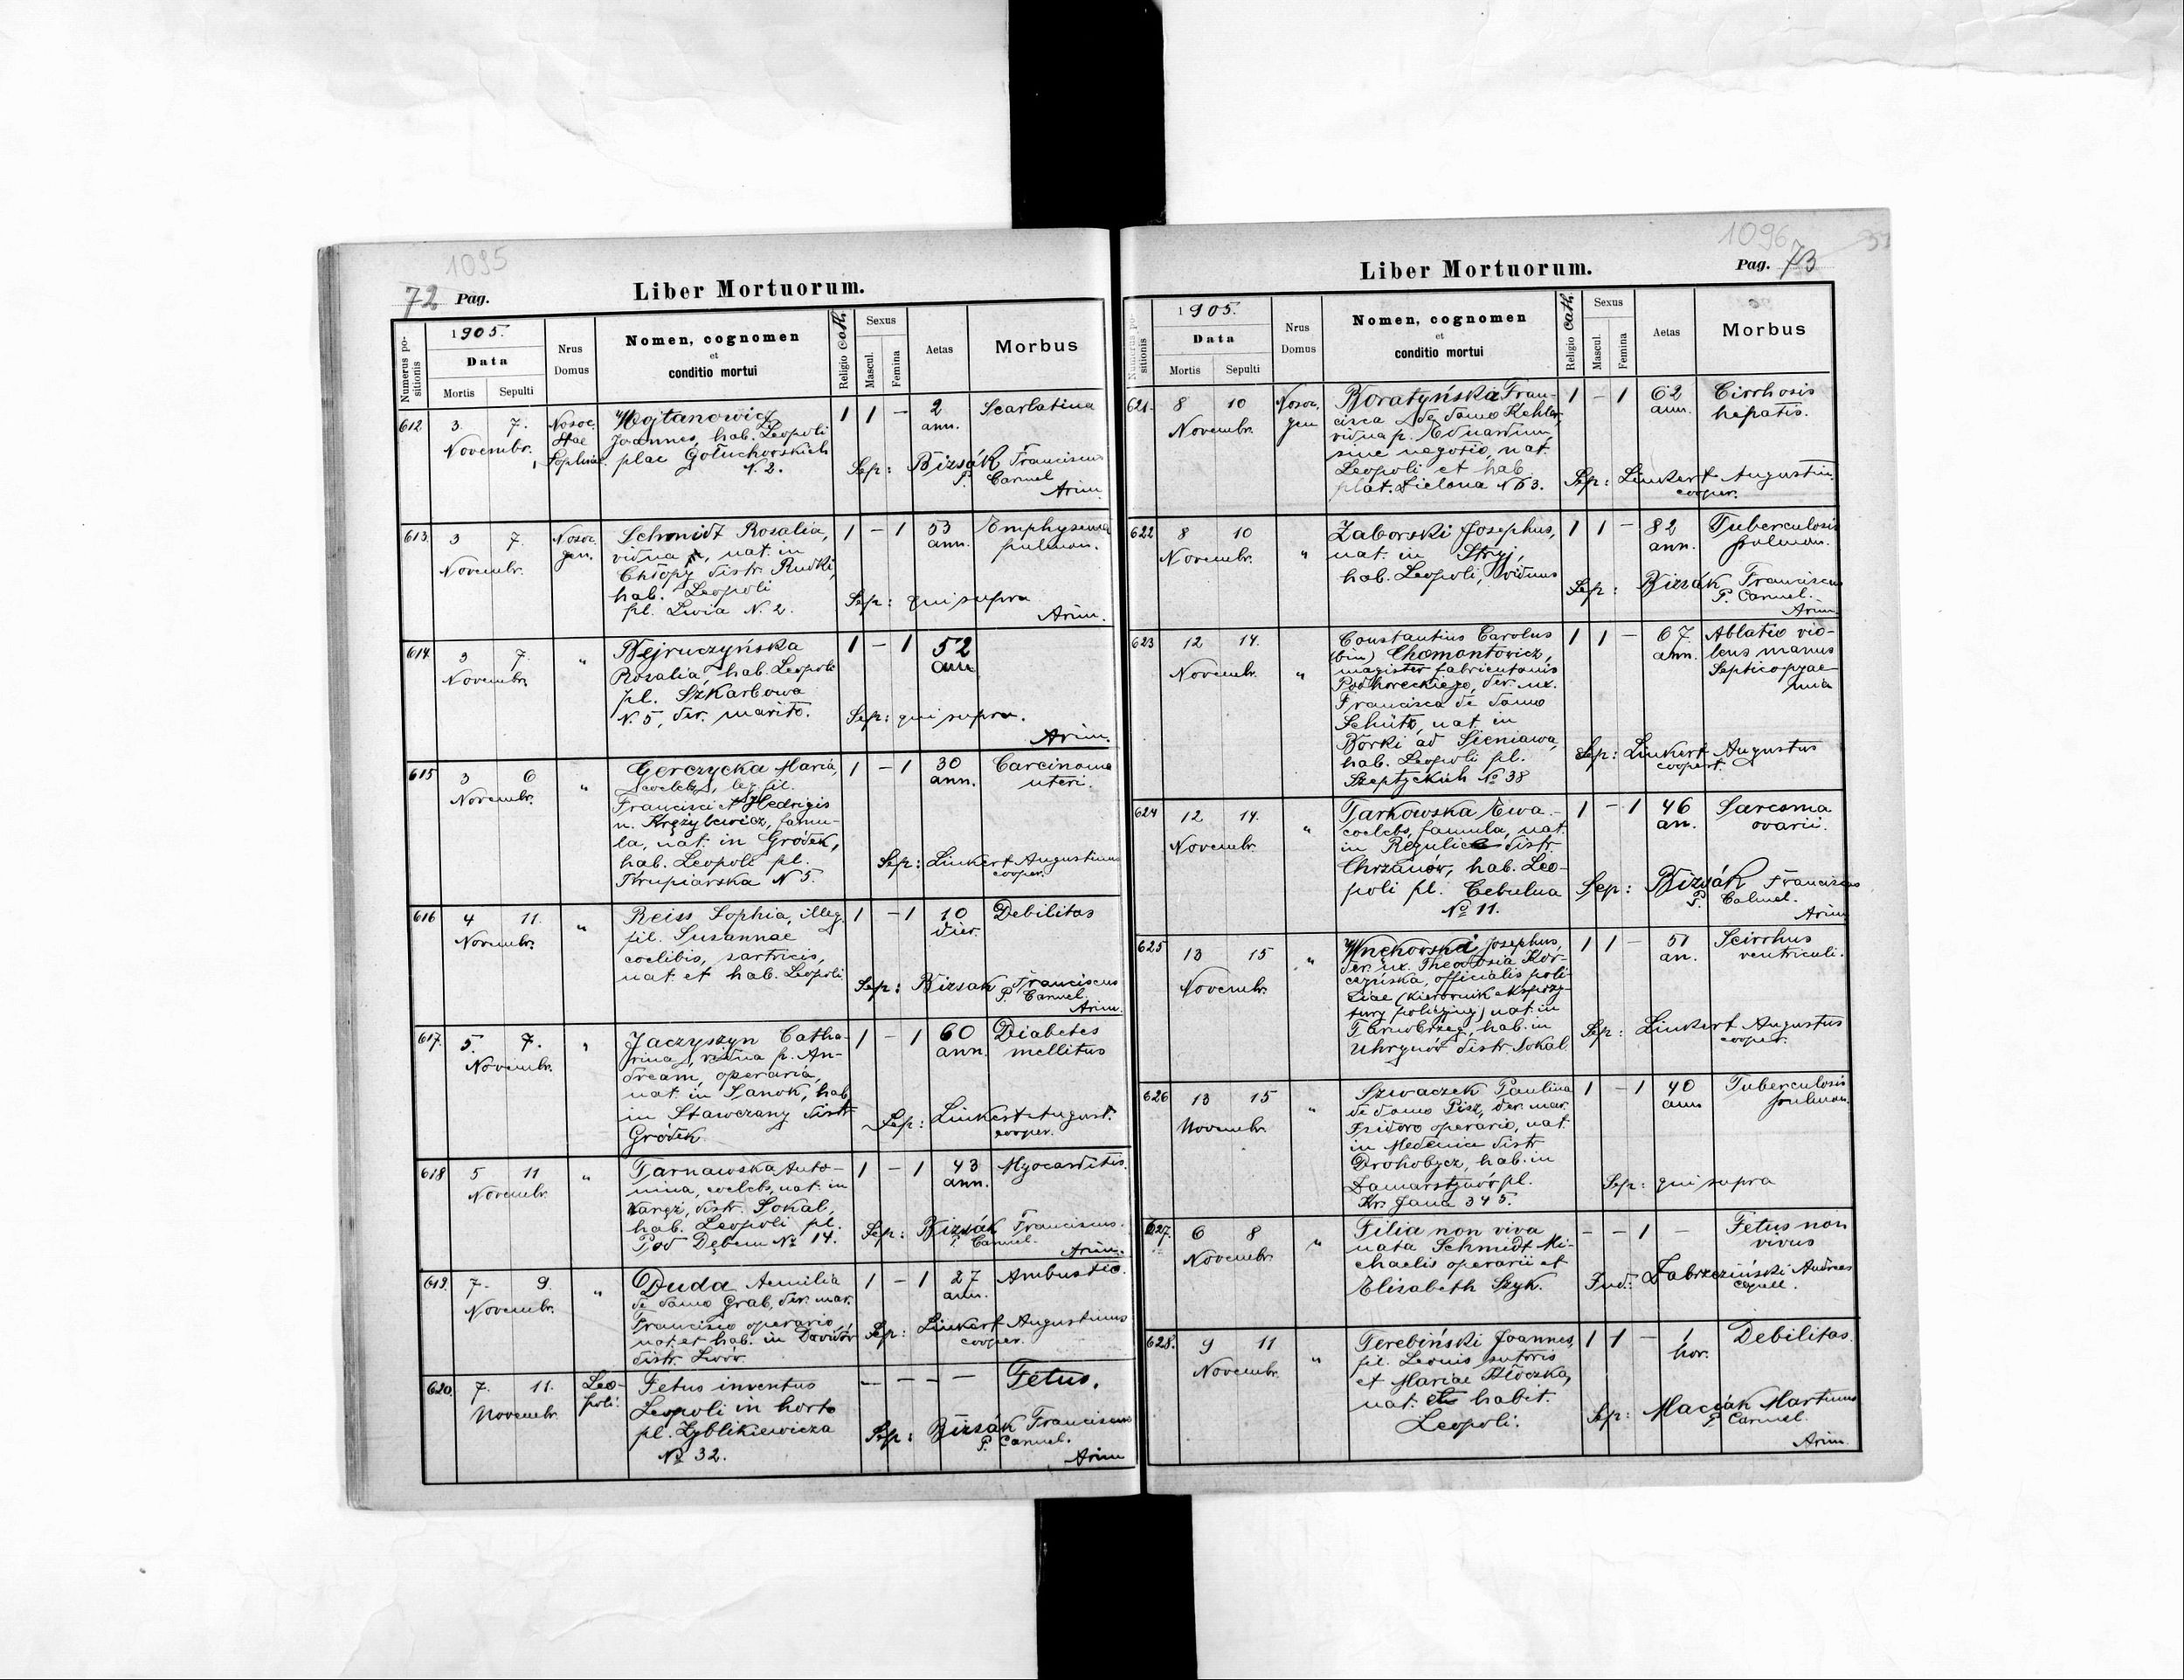 1095
72 Pag.
Liber Mortuorum.
Numerus positionis
1905.
Data
Mortis
Sepulti
Nrus Domus
Nomen, cognomen
et
conditio mortui
Religio cath.
Sexus
Mascul.
Femina
Aetas
Morbus
612 3. 7. Novembr.
Nosoc. Stae Sophiae.
Wojtanowicz
Joannes, hab. Leopoli
plac Gołuchowskich
N 2.
1 1 - 2 ann.
Scarlatina
Sep: Bizsák Franciscus
P. Carmel
Arim.
613. 3 7. Novembr.
Nosoc. gen.
Schmidt Rosalia,
vidua, nat. in
Chłopy distr. Rudki,
hab. Leopoli
pl. Lwia N. 2.
1 - 1 53 ann.
Emphysema
pulmon.
Sep: qui supra
Arim.
614. 3 7. Novembr.
"
Bejruczyńska
Rosalia, hab. Leopoli
pl. Szkarbowa
N. 5, der. marito.
1 - 1 52 ann.
Sep: qui supra.
Arim.
615 3 6 Novembr.
"
Gorczycka Maria,
coelebs, leg. fil.
Francisci et Hedvigis
n. Krzyżewicz, famu-
la, nat. in Gródek,
hab. Leopoli pl.
Krupiarska N 5.
1 - 1 30 ann.
Carcinoma
uteri.
Sep: Linkert Augustinus
cooper.
616 4 11. Novembr.
"
Reiss Sophia, illeg.
fil. Susannae
coelibis, sartricis,
nat. et hab. Leopoli
1 - 1 10 dier.
Debilitas
Sep: Bizsak Franciscus
P. Carmel.
Arim.
617. 5. 7. Novembr.
"
Jaczyszyn Catha-
rina, vidua p. An-
dream, operaria,
nat. in Sanok, hab.
in Stawczany distr.
Gródek.
1 - 1 60 ann.
Diabetes
mellitus
Sep: Linkert August.
cooper.
618 5 11 Novembr.
"
Tarnawska Anto-
nina, coelebs, nat. in
Waręż, distr. Sokal,
hab. Leopoli pl.
Pod Dębem No 14.
1 - 1 43 ann.
Myocarditis.
Sep: Bizsák Franciscus.
P. Carmel.
Arim.
619. 7. 9. Novembr.
"
Duda Aemilia
de domo Grab, der. mar.
Francisco operario,
nat. et hab. in Dawidów
distr. Lwów.
1 - 1 27 ann.
Ambustio.
Sep: Linkert Augustinus
cooper.
620. 7. 11. Novembr.
Leo-
poli.
Fetus inventus
Leopoli in horto
pl. Zyblikiewicza
No 32.
- - - -
Fetus.
Sep: Bizsák Franciscus
P. Carmel.
Arim
1096
Pag. 73
Liber Mortuorum.
Numerus positionis
1905.
Data
Mortis
Sepulti
Nrus Domus
Nomen, cognomen
et
conditio mortui
Religio cath.
Sexus
Mascul.
Femina
Aetas
Morbus
621. 8 10 Novembr.
Nosoc. gen
Boratyńska Fran-
cisca de domo Kehler,
vidua p. Eduardum,
sine negotio, nat.
Leopoli et hab.
plat. Zielona N 63.
1 - 1 62 ann.
Cirrhosis
hepatis.
Sep: Linkert Augustin.
cooper.
622 8 10 Novembr.
"
Zaborski Josephus,
nat. in Stryj,
hab. Leopoli, viduus
1 1 - 82 ann.
Tuberculosis
pulmon.
Sep: Bizsák Franciscus
P. Carmel.
Arim.
623 12 14. Novembr.
"
Constantius Carolus
(bin) Chomontowicz,
magister fabricutonis
Podhoreckiego, der. ux.
Francisca de domo
Schütz, nat. in
Borki ad Sieniawa,
hab. Leopoli pl.
Szeptyckich No 38
1 1 - 67. ann.
Ablatio vio-
lens manus
Septicopyae-
mia
Sep: Linkert Augustus
cooper.
624 12 14. Novembr.
"
Tarkowska Ewa.-
coelebs, famula, nat.
in Regulice distr.
Chrzanów, hab. Leo-
poli pl. Cebulna
No 11.
1 - 1 46 an.
Sarcoma
ovarii.
Sep: Bizsák Franciscus
P. Calmel.
Arim.
625 13 15 Novembr.
"
Wnękowski Josephus,
der. ux. Theodosia Kor-
czyńska, officialis poli-
tiae (kierownik ekspozy-
tury policyjnej) nat. in
Tarnobrzeg, hab. in
Uhrynów distr. Sokal
1 1 - 51 an.
Scirrhus
ventriculi.
Sep: Linkert Augustus
cooper.
626 13 15 Novembr.
"
Szwaczek Paulina
de domo Pisz, der. mar.
Isidoro operario, nat.
in Medenice distr.
Drohobycz, hab. in
Zamarstynów pl.
Kr. Jana 345.
1 - 1 40 ann
Tuberculosis
pulmon.
Sep: qui supra
627. 6 8 Novembr.
"
Filia non viva
nata Schmidt Mi-
chaelis operarii et
Elisabeth Szyk.
- - 1 -
Fetus non
vivus
Ind: Zabrzeziński Andreas
capell.
628. 9 11 Novembr.
"
Terebiński Joannes,
fil. Leonis sutoris
et Mariae Kłoczka,
nat. et habit.
Leopoli.
1 1 - 1 hor.
Debilitas.
Sep: Maciák Martinus
P. Carmel.
Arim.